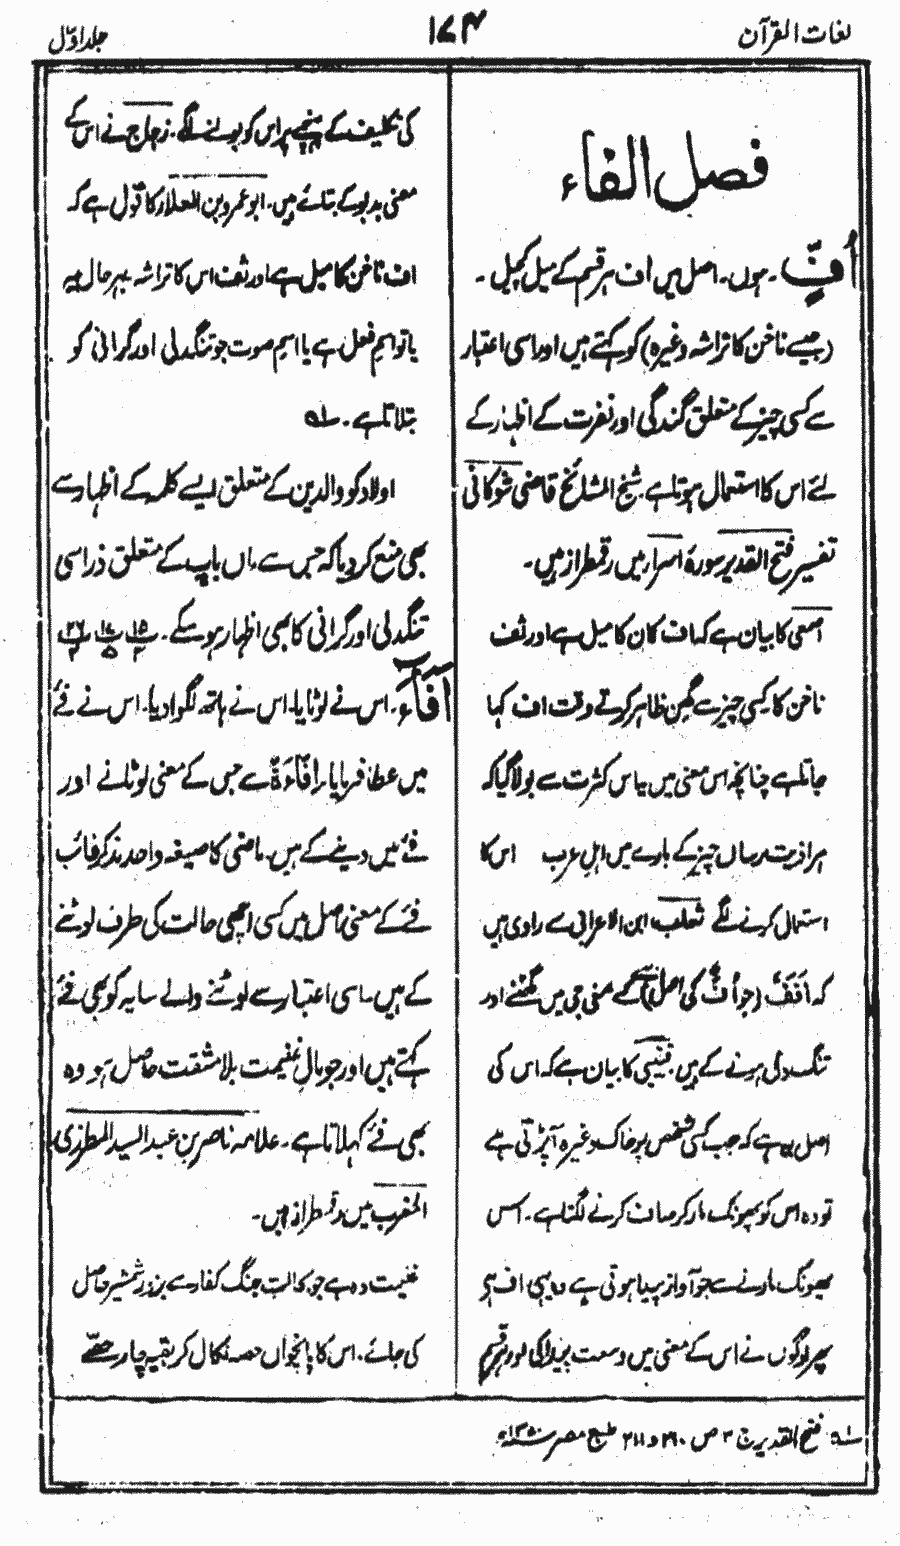 لغات القرآن
۱۷۴
جلد اوّل
فصل الفاء
اُفٍّ ۔ ہوں۔ اصل میں اف ہر قسم کے میل کچیل ۔
(جیسے ناخن کا تراشہ وغیرہ) کو کہتے ہیں اور اسی اعتبار
سے کسی چیز کے متعلق گندگی اور نفرت کے اظہار کے
لئے اس کا استعمال ہوتا ہے۔ شیخ المشائخ قاضی شوکانی
تفسیر فتح القدیر سورۂ اسرار میں رقمطراز ہیں۔
اصمعی کا بیان ہے کہ اف کان کا میل ہے اور تف
ناخن کا۔ کسی چیز سے گھن ظاہر کرتے وقت اف کہا
جاتا ہے چنانچہ اس معنی میں یہ اس کثرت سے بولا گیا کہ
ہر اذیت رساں چیز کے بارے میں اہل عرب اس کا
استعمال کرنے لگے ثعلب ابن الاعرابی سے راوی ہیں
کہ اَفَفٌ (جو اُفٌّ کی اصل ہے) کے معنی جی میں گھٹنے اور
تنگ دل ہونے کے ہیں۔ قتیبی کا بیان ہے کہ اس کی
اصل یہ ہے کہ جب کسی شخص پر خاک وغیرہ آپڑتی ہے
تو وہ اس کو پھونک مار کر صاف کرنے لگتا ہے۔ اس
پھونک مارنے سے جو آواز پیدا ہوتی ہے وہ یہی اف ہے
پھر لوگوں نے اس کے معنی میں وسعت پیدا کی اور ہر قسم
کی تکلیف کے پہنچنے پر اس کو بولنے لگے۔ زجاج نے اس کے
معنی بدبو کے بتائے ہیں۔ ابو عمرو بن العلار کا قول ہے کہ
اف ناخن کا میل ہے اور تف اس کا تراشہ بہر حال یہ
یا تو اسم فعل ہے یا اسم صوت جو تنگدلی اور گرانی کو
بتلاتا ہے۔ ؎۱
اولاد کو والدین کے متعلق ایسے کلمہ کے اظہار سے
بھی منع کردیا کہ جس سے ماں باپ کے متعلق ذرا سی
تنگدلی اور گرانی کا بھی اظہار ہو سکے۔
اَفَاءَ۔ اس نے لوٹایا۔ اس نے ہاتھ لگوادیا۔ اس نے فئے
میں عطا فرمایا۔ اِفَاءَةٌ سے جس کے معنی لوٹانے اور
فئے میں دینے کے ہیں۔ ماضی کا صیغہ واحد مذکر غائب
فئے کے معنی اصل میں کسی اچھی حالت کی طرف لوٹنے
کے ہیں۔ اسی اعتبار سے لوٹنے والے سایہ کو بھی فئے
کہتے ہیں اور جو مال غنیمت بلا مشقت حاصل ہو وہ
بھی فئے کہلاتا ہے۔ علامہ ناصر بن عبد السید المطرزی
المغرب میں رقمطراز ہیں۔
غنیمت وہ ہے جو بحالت جنگ کفار سے بزور شمشیر حاصل
کی جائے۔ اس کا پانچواں حصہ نکال کر بقیہ چار حصّے
؎۱ فتح القدیر ج ۳ ص ۲۹۰ و ۲۱۱ طبع مصر ۱۳۵۰ھ